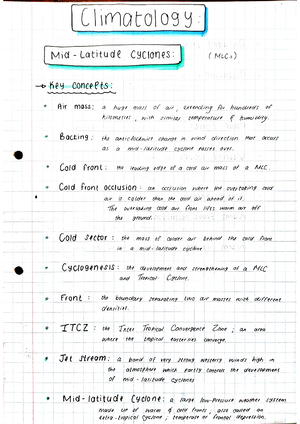 Climatology:
Mid-Latitude Cyclones: (MLCs)
→ Key concepts:
• Air mass: a huge mass of air, extending for hundreds of
kilometres, with similar temperature & humidity.
• Backing: the anticlockwise change in wind direction that occurs
as a mid-latitude cyclone passes over.
• Cold front: the leading edge of a cold air mass of a MLC.
• Cold front occlusion: an occlusion where the overtaking cold
air is colder than the cold air ahead of it.
The overtaking cold air front lifts warm air off
the ground.
• Cold sector: the mass of colder air behind the cold front
in a mid-latitude cyclone
• Cyclogenesis: the development and strengthening of a MLC
and Tropical Cyclone.
• Front: the boundary separating two air masses with different
densities.
• ITCZ: the Inter Tropical Convergence Zone; an area
where the tropical easterlies converge.
• Jet stream: a band of very strong westerly winds high in
the atmosphere which partly controls the development
of mid-latitude cyclones
• Mid-latitude Cyclone: a large low-pressure weather system
made up of warm & cold fronts; also called an
extra-tropical cyclone; temperate or frontal depression.